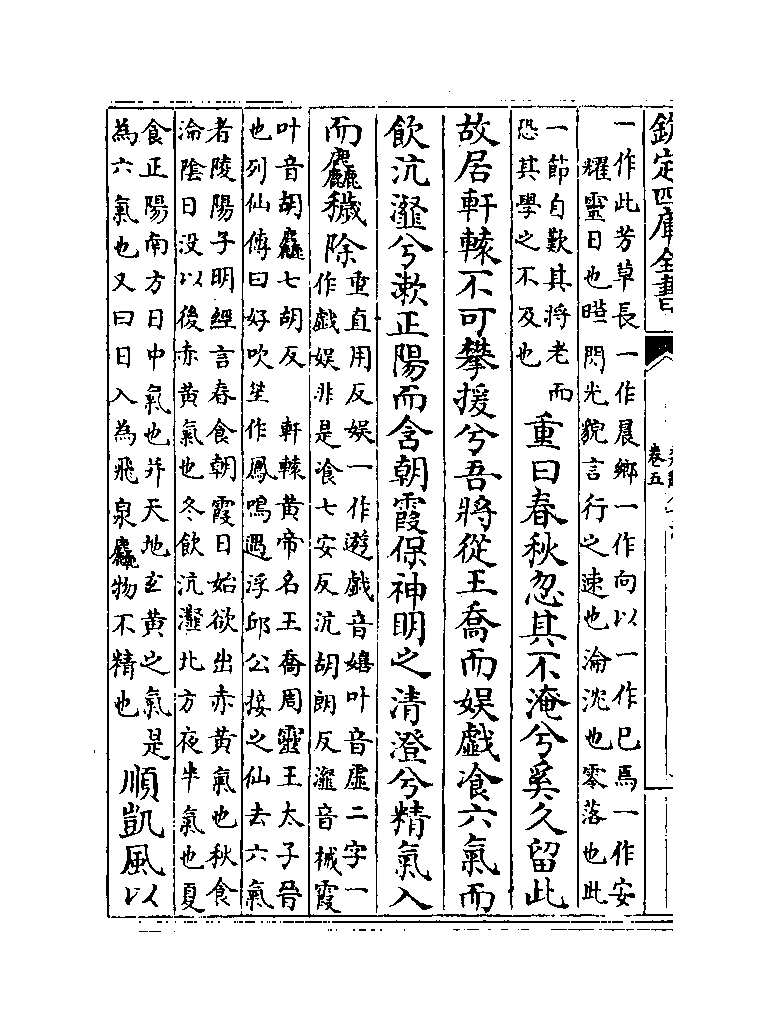 欽定四庫全書
卷五
一作此芳草長一作晨鄉一作向以一作巳焉一作安
耀靈日也曄閃光貌言行之速也淪沈也零落也此
一節自歎其將老而
恐其學之不及也
重曰春秋忽其不淹兮奚久留此
故居軒轅不可攀援兮吾將從王喬而娛戲飡六氣而
飲沆瀣兮漱正陽而含朝霞保神明之清澄兮精氣入
而麤穢除
重直用反娛一作遊戲音嬉叶音虛二字一
作戲娛非是飡七安反沆胡朗反瀣音械霞
叶音胡麤七胡反　軒轅黃帝名王喬周靈王太子晉
也列仙傳曰好吹笙作鳳鳴遇浮邱公接之仙去六氣
者陵陽子明經言春食朝霞日始欲出赤黃氣也秋食
淪陰日没以後赤黃氣也冬飲沆瀣北方夜半氣也夏
食正陽南方日中氣也并天地玄黃之氣是
為六氣也又曰日入為飛泉麤物不精也
順凱風以